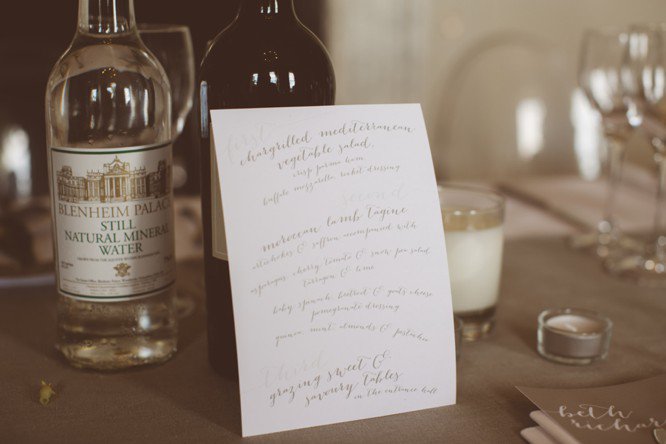 BLENHEIM PALACE
STILL
NATURAL MINERAL
WATER
first
chargrilled mediterranean
vegetable salad,
crisp parma ham
buffalo mozzarella rocket dressing
second
moroccan lamb tagine
artichokes & saffron accompanied with
asparagus, cherry tomato & snow pea salad
tarragon & lime
baby spinach, beetroot & goats cheese
pomegranate dressing
quinoa, mint, almonds & pistachio
third
grazing sweet &
savoury tables
in the entrance hall
beth